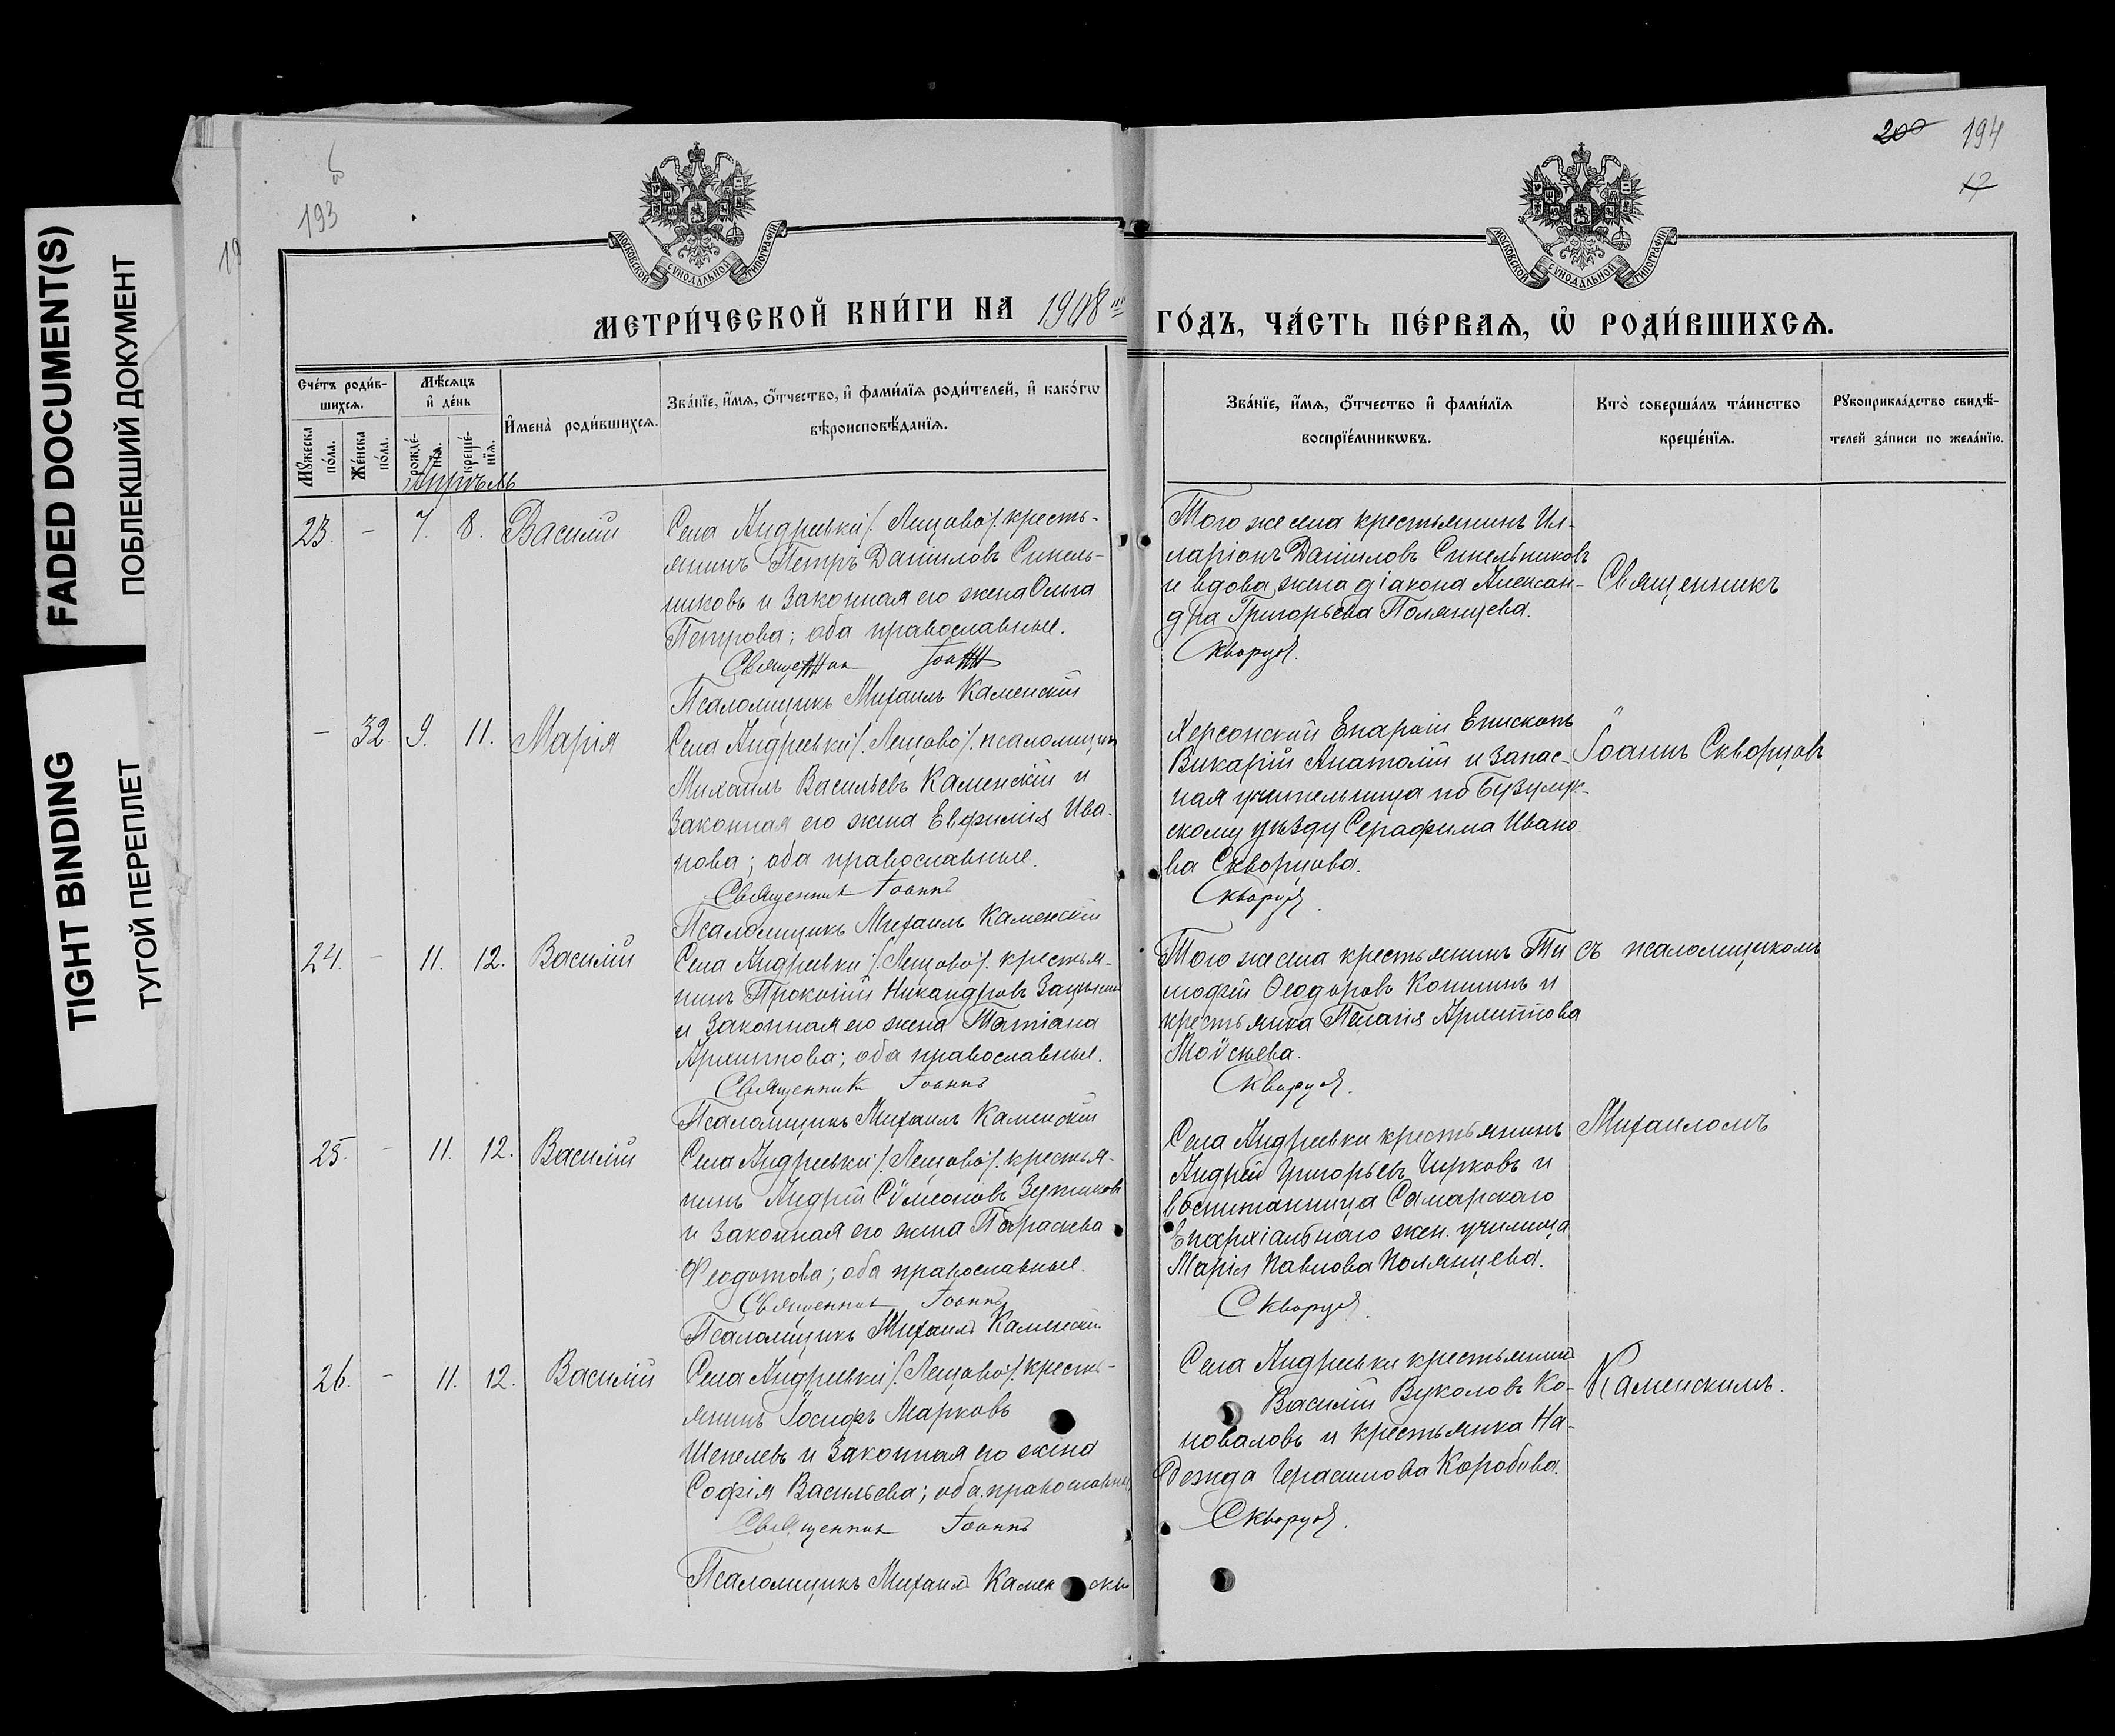 FADED DOCUMENT(S)
ПОБЛЕКШИЙ ДОКУМЕНТ
TIGHT BINDING
ТУГОЙ ПЕРЕПЛЕТ
193
200 194
17
МОСКОВСКОЙ СѴНОДАЛЬНОЙ ТИПОГРАФІИ
МОСКОВСКОЙ СѴНОДАЛЬНОЙ ТИПОГРАФІИ
МЕТРИ́ЧЕСКОЙ КНИ́ГИ НА 1908 ГО́ДЪ, ЧА́СТЬ ПЕ́РВАѦ, Ѽ РОДИ́ВШИХСѦ.
Сче́тъ роди́в-
шихсѧ.
Мꙋ́жеска по́ла.
Же́нска по́ла.
Мѣ́сѧцъ и҆ де́нь
рожде́-нїѧ.
креще́-нїѧ.
И҆мена̀ роди́вшихсѧ.
Зва́нїе, и҆́мѧ, ѻ҆́тчество, и҆ фами́лїѧ роди́телей, и҆ како́гѡ
вѣроисповѣ́данїѧ.
Зва́нїе, и҆́мѧ, ѻ҆́тчество и҆ фами́лїѧ
воспрїе́мникѡвъ.
Кто̀ соверша́лъ та́инство
креще́нїѧ.
Рꙋкоприкла́дство свидѣ́-
телей за́писи по жела́нїю.
Апрѣль
23. - 7. 8. Василій
Села Андреевки /. Лещово /. кресть-
янинъ Петръ Даніиловъ Синель-
никовъ и законная его жена Ольга
Петрова; оба православные.
Священник Іоанн
Псаломщикъ Михаилъ Каменскій
Того же села крестьянинъ Ил-
ларіонъ Даніиловъ Синельниковъ
и вдова жена діакона Алексан-
дра Григорьева Полянцева.
Скворцов.
Священникъ
- 32. 9. 11. Марія
Села Андреевки /. Лещово /. псаломщикъ
Михаилъ Васильевъ Каменскій и
законная его жена Евфимія Ива-
нова; оба православные.
Священник Іоаннъ
Псаломщикъ Михаилъ Каменскій
Херсонской Епархіи Епископъ
Викарій Анатолій и запас-
ная учительница по Бузулук-
скому уѣзду Серафима Ивано
ва Скворцова.
Скворцов.
Іоаннъ Скворцовъ
24. - 11. 12. Василій
Села Андреевки /. Лещово /. крестья-
нинъ Прокопій Никандровъ
и законная его жена Татіана
Архиппова; оба православные.
Священник Іоаннъ
Псаломщикъ Михаилъ Каменскій
Того же села крестьянинъ Ти
мофей Ѳеодоровъ Кошинъ и
крестьянка Пелагія Архиппова
Моѵсеева.
Скворцов.
съ псаломщикомъ
25. - 11. 12. Василій
Села Андреевки /. Лещово /. крестья-
нинъ Андрей Сѵмеоновъ
и законная его жена Параскева
Ѳеодотова; оба православные.
Священник Іоаннъ
Псаломщикъ Михаилъ Каменскій
Села Андреевки крестьянинъ
Андрей Григорьевъ Чирковъ и
воспитанница Самарскаго
Епархіальнаго жен. училища
Марія Павлова Полянцева.
Скворцов.
Михаиломъ
26. - 11. 12. Василій
Села Андреевки /. Лещово /. кресть-
янинъ Іосифъ Марковъ
Шепелевъ и законная его жена
Софія Васильева; оба православные
Священник Іоаннъ
Псаломщикъ Михаилъ Каменскій
Села Андреевки крестьянинъ
Василій Вуколовъ Ко-
новаловъ и крестьянка На-
дежда Герасимова Коробова.
Скворцов.
Каменскимъ.